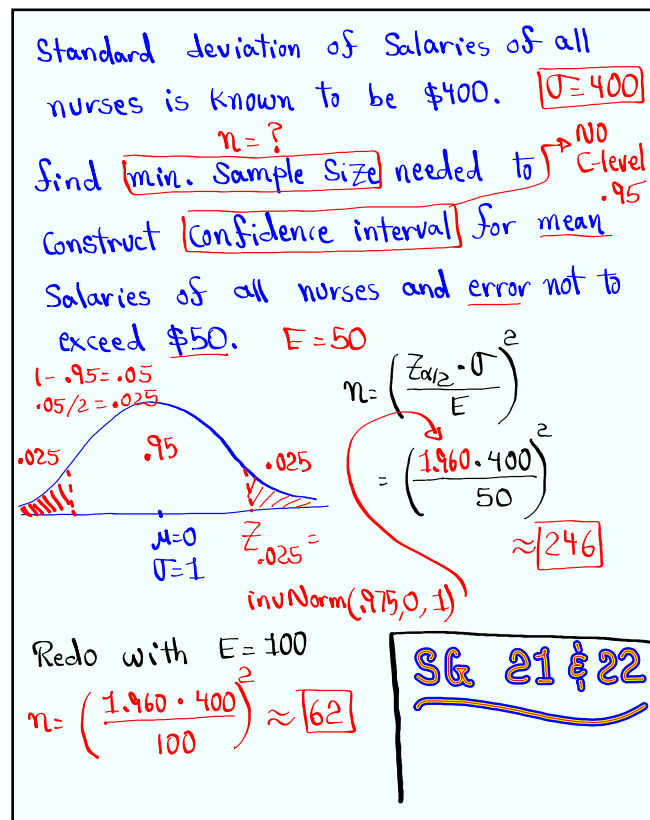 Standard deviation of Salaries of all
nurses is known to be $400. σ=400
n=?
find min. Sample Size needed to
NO
C-level
.95
Construct Confidence interval for mean
Salaries of all nurses and error not to
exceed $50. E=50
1-.95=.05
.05/2=.025
.025 .95 .025
μ=0
σ=1
Z.025=
invNorm(.975,0,1)
n=(Zα/2·σ/E)²
=(1.960·400/50)²
≈246
Redo with E=100
n=(1.960·400/100)²≈62
SG 21 & 22